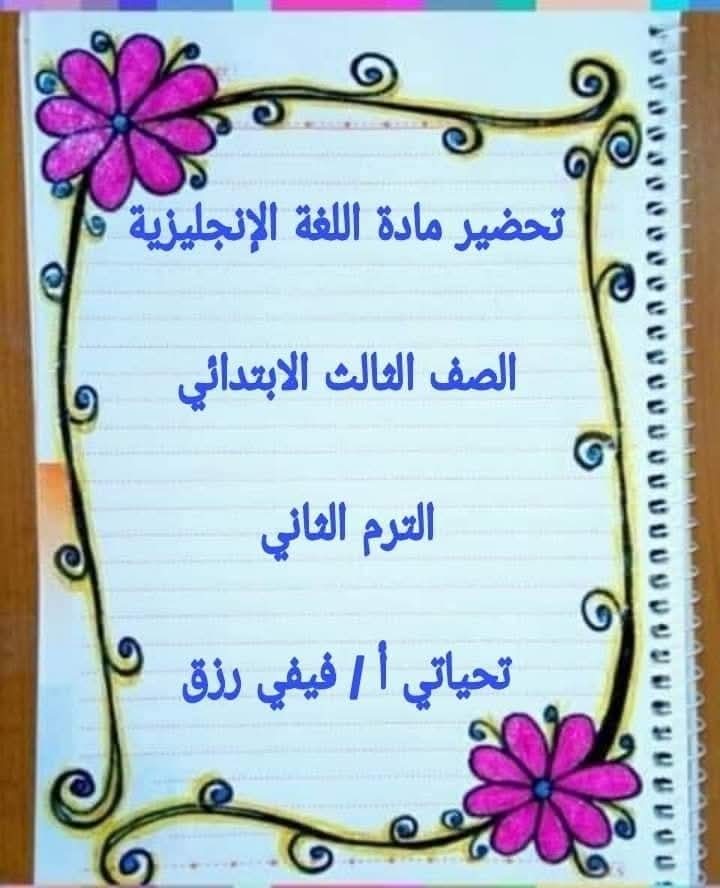 تحضير مادة اللغة الإنجليزية
الصف الثالث الابتدائي
الترم الثاني
تحياتي أ / فيفي رزق